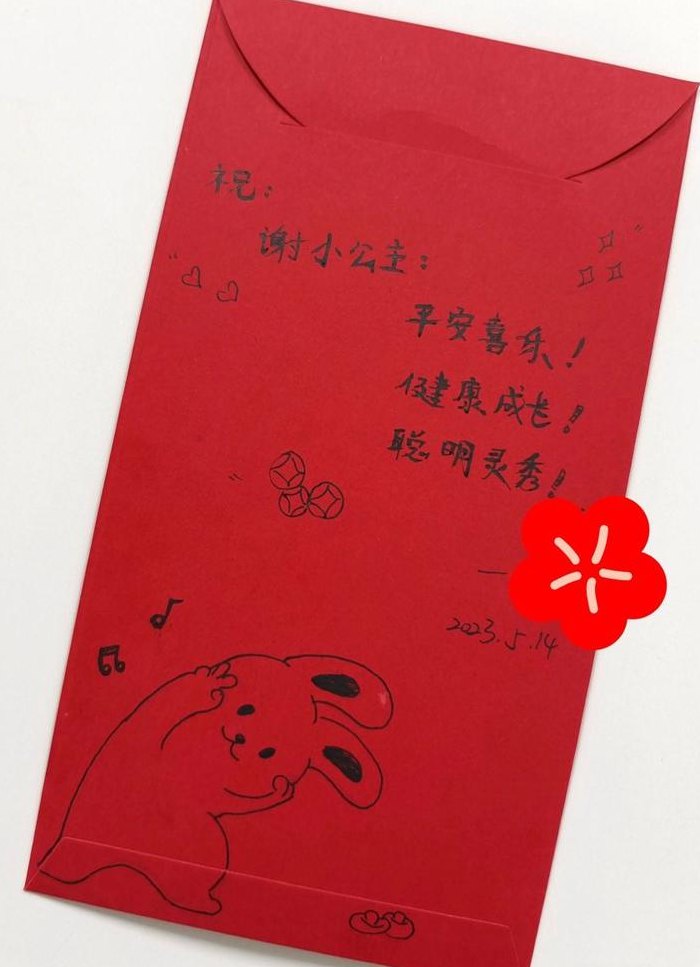 祝：
谢小公主：
平安喜乐！
健康成长！
聪明灵秀！
—
2023.5.14